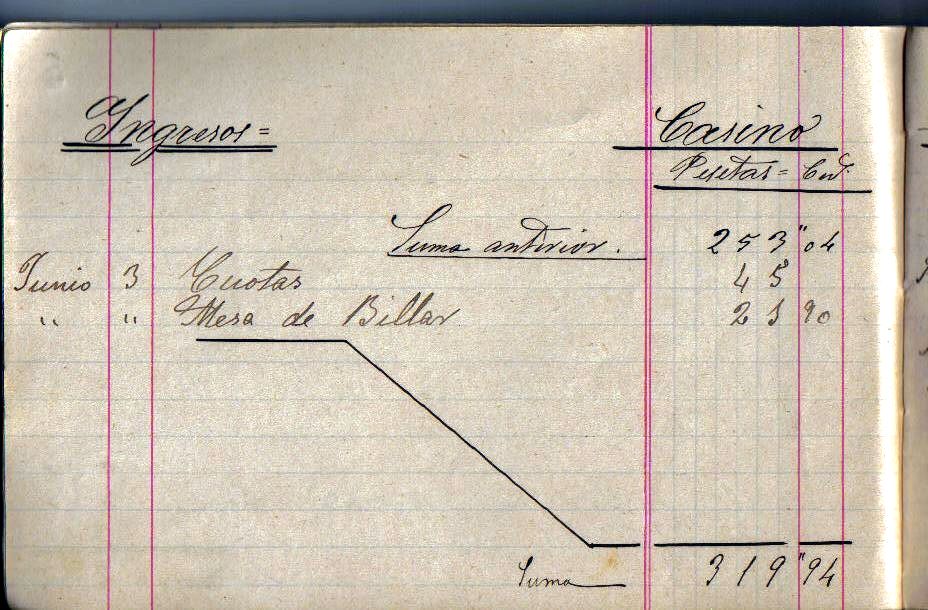 Ingresos= Casino
Pesetas= Cent.
Suma anterior. 253"04
Junio 3 Cuotas 45
" " Mesa de Billar 21 90
Suma 319"94